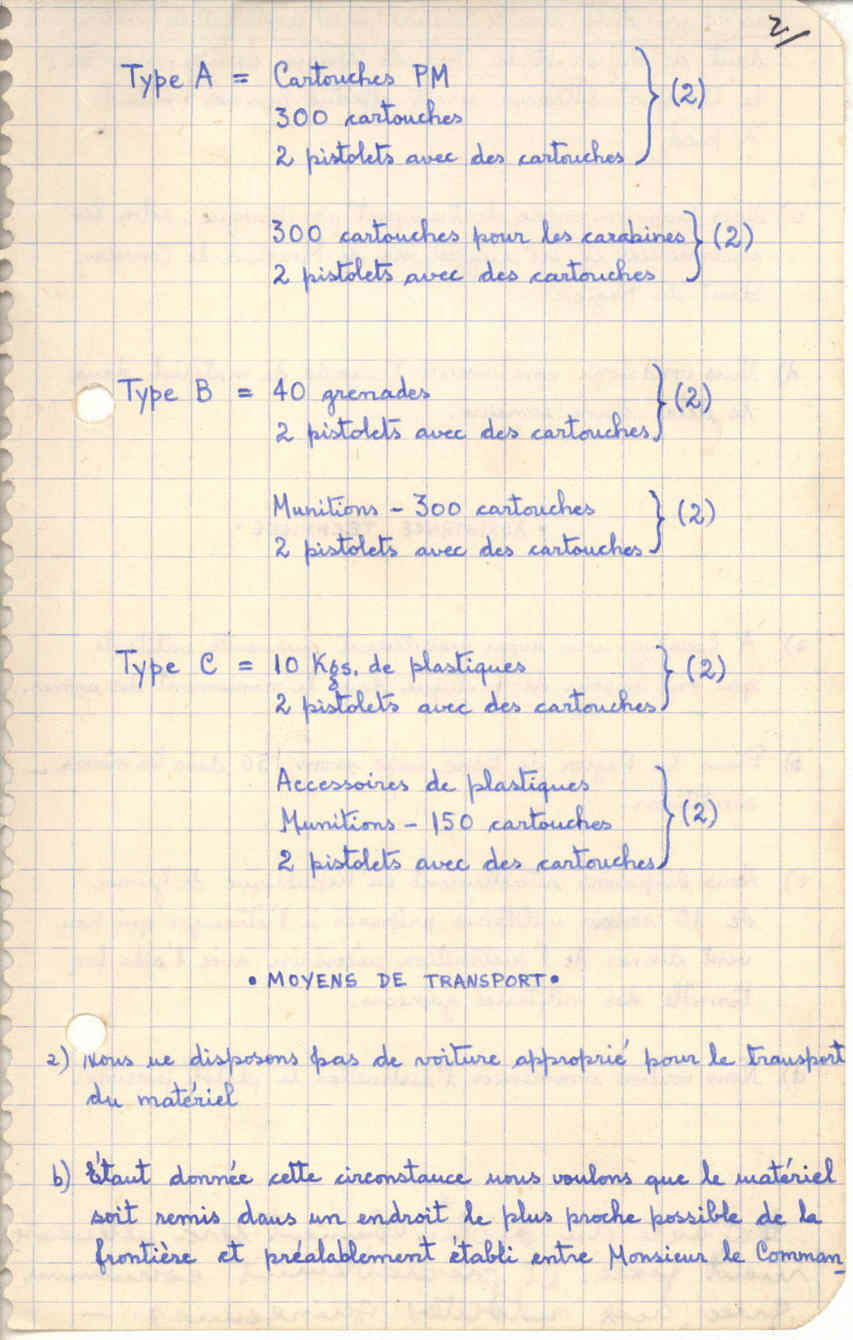 2/
Type A = Cartouches PM
300 cartouches
2 pistolets avec des cartouches } (2)
300 cartouches pour les carabines
2 pistolets avec des cartouches } (2)
Type B = 40 grenades
2 pistolets avec des cartouches } (2)
Munitions - 300 cartouches
2 pistolets avec des cartouches } (2)
Type C = 10 Kgs. de plastiques
2 pistolets avec des cartouches } (2)
Accessoires de plastiques
Munitions - 150 cartouches
2 pistolets avec des cartouches } (2)
• MOYENS DE TRANSPORT •
a) Nous ne disposons pas de voiture approprié pour le transport
du matériel
b) Étant donnée cette circonstance nous voulons que le matériel
soit remis dans un endroit le plus proche possible de la
frontière et préalablement établi entre Monsieur le Comman-